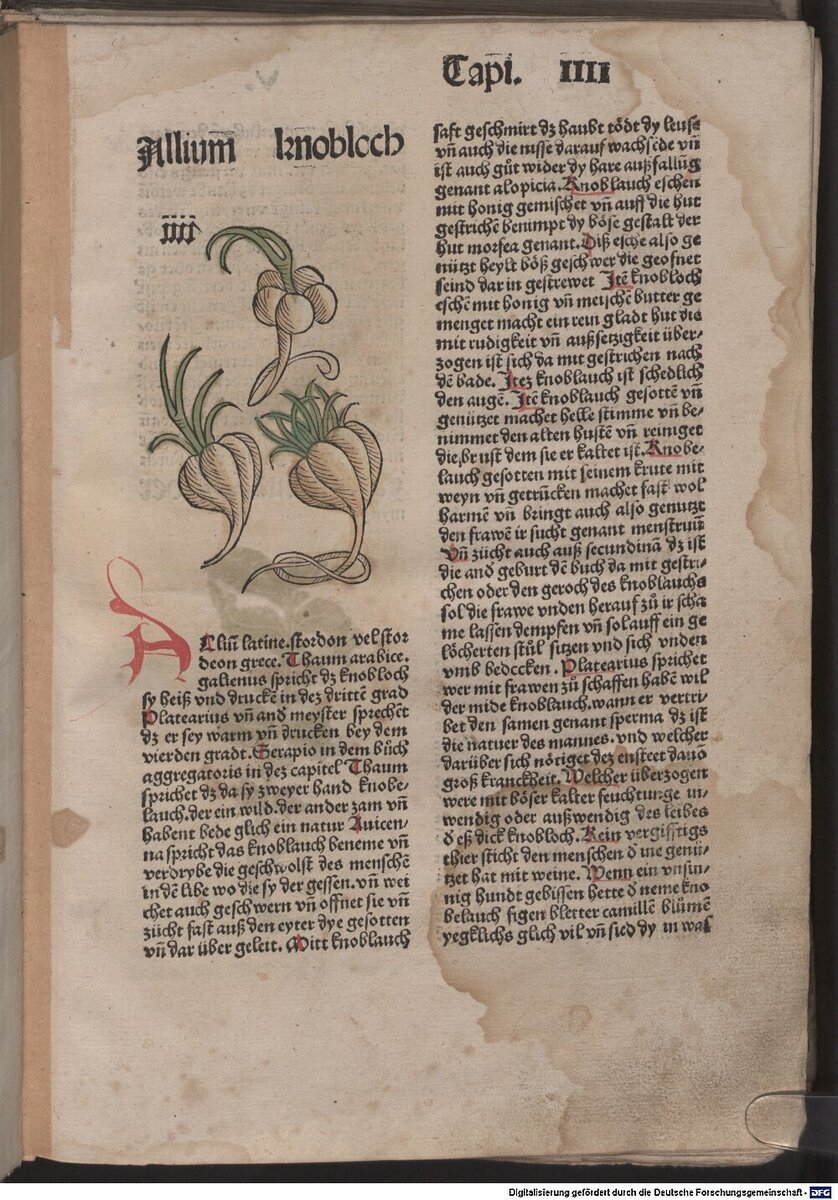 Capi. IIII
Allium̄ knobloch
iiii
ALliū latine.stordon vel stor
deon grece. Thaum arabice.
galienus spricht dz knobloch
sy heiß vnd druckē in dez drittē grad
Platearius vn̄ and meyster sprechēt
dz er sey warm vn̄ drucken bey dem
vierden gradt. Serapio in dem bůch
aggregatoris in dez capitel Thaum
sprichet dz da sy zweyer hand knobe⸗
lauch.der ein wild.der ander zam vn̄
habent bede glich ein natur Auicen⸗
na spricht das knoblauch beneme vn̄
verdrybe die geschwolst des menschē
in dē libe wo die sy der gessen.vn̄ wei
chet auch geschwern vn̄ offnet sie vn̄
zücht fast auß den eyter dye gesotten
vn̄ dar über geleit. Mitt knoblauch
saft geschmirt dz haubt tödt dy leuse
vn̄ auch die nisse darauf wachsēde vn̄
ist auch gůt wider dy hare außfallūg
genant alopicia. Knoblauch eschen
mit honig gemischet vn̄ auff die hut
gestrichē benimpt dy böse gestalt der
hut morfea genant. Diß esche also ge
nützt heylt böß geschwer die geofnet
seind dar in gestrewet Itē knobloch
eschē mit honig vn̄ meischē butter ge
menget macht ein rein gladt hut die
mit rudigkeit vn̄ aussetzigkeit über⸗
zogen ist sich da mit gestrichen nach
dē bade. Itez knoblauch ist schedlich
den augē. Itē knoblauch gesottē vn̄
genützet machet helle stimme vn̄ be⸗
nimmet den alten hustē vn̄ reiniget
die brust dem sie er kaltet ist. Knobe⸗
lauch gesotten mit seinem krute mit
weyn vn̄ getrūcken machet fast wol
harmē vn̄ bringt auch also genutzt
den frawē ir sucht genant menstruū
Vn̄ zücht auch auß secundinā dz ist
die and geburt dē buch da mit gestri⸗
chen oder den geroch des knoblauchs
sol die frawe vnden herauf zů ir scha
me lassen dempfen vn̄ sol auff ein ge
löcherten stůl sitzen vnd sich vnden
vmb bedecken. Platearius sprichet
wer mit frawen zů schaffen haben wil
der mide knoblauch.wann er vertri⸗
bet den samen genant sperma dz ist
die natuer des mannes. vnd welcher
darüber sich nötiget dez ensteet dauō
groß kranckheit. Welcher überzogen
were mit böser kalter feuchtunge in⸗
wendig oder außwendig des leibes
d eß dick knobloch. Kein vergifftigs
thier sticht den menschen d die genü⸗
tzet hat mit weine. Wenn ein vnsin⸗
nig hundt gebissen hette d neme kno
belauch figen bletter camillē blůmē
yegklichs glich vil vn̄ sied dy in was
Digitalisierung gefördert durch die Deutsche Forschungsgemeinschaft - DFG